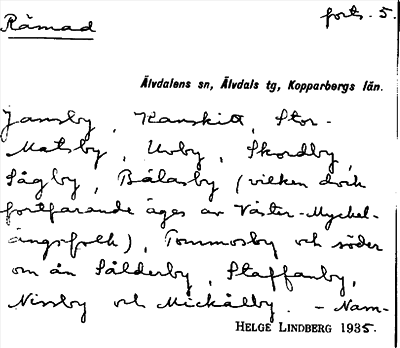 Råmad
forts. 5.
Älvdalens sn, Älvdals tg, Kopparbergs län.
Jamsby, Kanskitt, Stor-
Matsby, Urby, Skordby,
Sågby, Bålasby (vilken dock
fortfarande äges av Väster-Myckel-
ängsfolk), Tommosby och söder
om ån Sålderby, Staffanby,
Nissby och Mickålby. – Nam-
HELGE LINDBERG 1935.